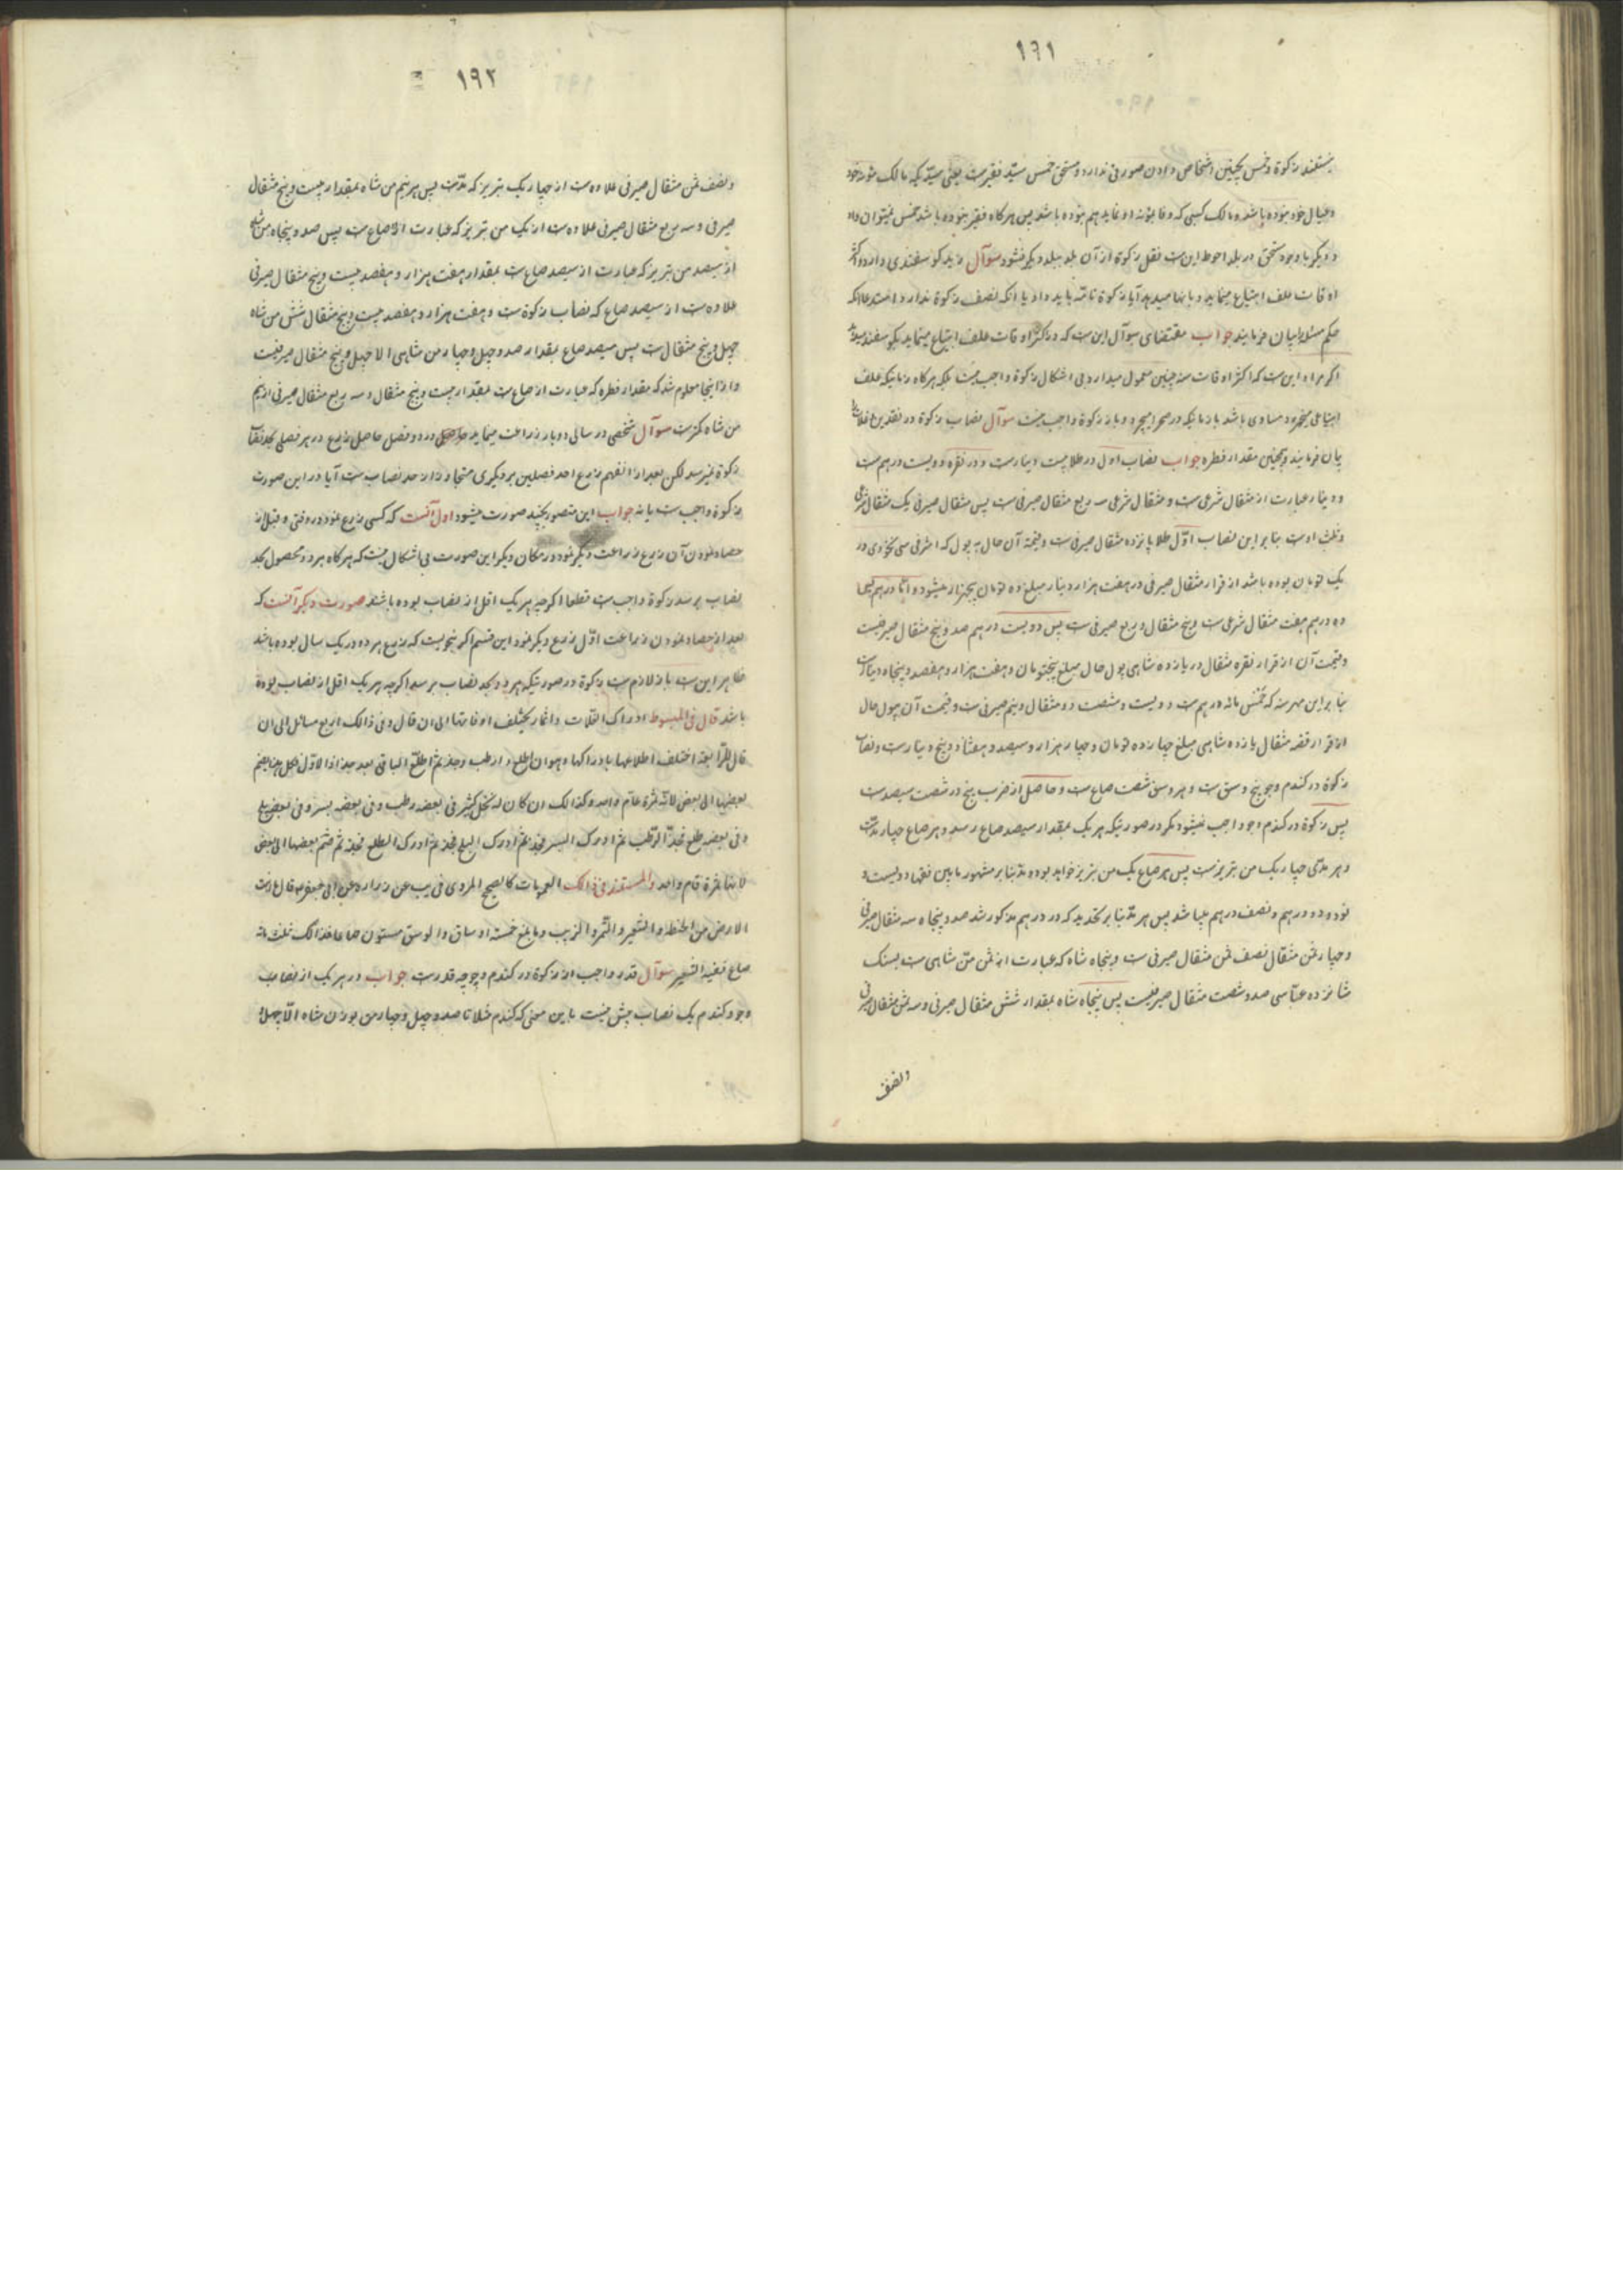 ۱۹۱
نیستند زکوة و خمس بچنین اشخاص دادن صورتی ندارد و مستحق خمس سید فقیر است یعنی سیدیکه مالک مئونه خود
و عیال خود نبوده باشد و مالک کسبی که وفا بمؤنه او نماید هم نبوده باشد پس هر کاه فقیر نبوده باشد خمس نمیتوان داد
و دیکر با وجود مستحق در بلد احوط این است نقل زکوة از آن بلد ببلد دیکر نشود سوآل زید کوسفندی دارد و اکثر
اوقات علف ابتیاع مینماید و بانها میدهد آیا زکوة تامه باید داد یا انکه نصف زکوة ندارد استدعا انکه
حکم مسئله را بیان فرمایند جواب مقتضای سوآل این است که در اکثر اوقات علف ابتیاع مینماید بکوسفند میدهد
اکر مراد این است که اکثر اوقات سنه چنین معمول میدارد بی اشکال زکوة واجب نیست بلکه هر کاه زمانیکه علف
ابتیاعی میخورد مساوی باشد با زمانیکه در صحرا میچرد باز زکوة واجب نیست سوآل نصاب زکوة در نقدین و غلات را
بیان فرمایند و همچنین مقدار فطره جواب نصاب اول در طلا بیست دینار است و در نقره دویست درهم است
و دینار عبارت از مثقال شرعی است و مثقال شرعی سه ربع مثقال صیرفی است پس مثقال صیرفی یک مثقال شرعی
و ثلث اوست بنا بر این نصاب اوّل طلا پانزده مثقال صیرفی است و قیمة آن حال به پول که اشرفی سی نخودی در
یک تومان بوده باشد از قرار مثقال صیرفی در هفت هزار دینار مبلغ ده تومان پنجهزار میشود و امّا درهم
ده درهم هفت مثقال شرعی است و پنج مثقال و ربع صیرفی است پس دویست درهم صد و پنج مثقال صیرفیست
و قیمت آن از قرار نقره مثقال در یازده شاهی پول حال مبلغ پنجتومان و هفت هزار و هفصد و پنجاه دینار است
بنا بر این مهر سنه که خمس مائه درهم است دویست و شصت و دو مثقال و نیم صیرفی است و قیمت آن پول حال
از قرار نقره مثقال یازده شاهی مبلغ چهارده تومان و چهار هزار و سیصد و هفتاد و پنج دینار است و نصاب
زکوة در کندم و جو پنج وسق است و هر وسق شصت صاع است و حاصل از ضرب پنج در شصت سیصد است
پس زکوة در کندم و جو واجب نمیشود مکر در صورتیکه هر یک بمقدار سیصد صاع رسد و هر صاع چهار مدّ است
و هر مدّی چهار یک من تبریز است پس هر صاع یک من تبریز خواهد بود و مدّ بنا بر مشهور ما بین فقها دویست و
نود و دو درهم و نصف درهم میباشد پس هر مدّ بنا بر تحدید که در درهم مذکور شد صد و پنجاه سه مثقال صیرفی
و چهار ثمن مثقال نصف ثمن مثقال صیرفی است و پنجاه شاه که عبارت از ثمن منّ شاهی است بسنک
شانزده عبّاسی صد و شصت مثقال صیرفیست پس پنجاه شاه بمقدار شش مثقال صیرفی و سه ثمن مثقال صیرفی
ونصف
۱۹۲
ونصف ثمن مثقال صیرفی علاوه است از چهار یک تبریز که مدّ است پس هر نیم من شاه بمقدار بیست و پنج مثقال
صیرفی و سه ربع مثقال صیرفی علاوه است از یک من تبریز که عبارت از صاع است پس صد و پنجاه من شاه
از سیصد من تبریز که عبارت از سیصد صاع است بمقدار هفت هزار و هفصد بیست و پنج مثقال صیرفی
علاوه است از سیصد صاع که نصاب زکوة است و هفت هزار و هفصد بیست و پنج مثقال شش من شاه
چهل و پنج مثقال است پس سیصد صاع بمقدار صد و چهل و چهار من شاهی الا چهل و پنج مثقال صیرفیست
و از اینجا معلوم شد که مقدار فطره که عبارت از صاع است بمقدار بیست و پنج مثقال و سه ربع مثقال صیرفی از نیم
من شاه کمتر است سوآل شخصی در سالی دو بار زراعت مینماید در دو فصل حاصل زرع در هر فصلی بحد نصاب
زکوة نمیرسد لکن بعد از انفهم زرع احد فصلین بر دیکری متجاوز از حد نصاب است آیا در این صورت
زکوة واجب است یا نه جواب این متصور بچند صورت میشود اول آنست که کسی زرع نمود در وقتی و قبل از
حصاد نمودن آن زرع زراعت دیکر نمود در مکان دیکر این صورت بی اشکال نیست که هر کاه هر دو محصول بحد
نصاب برسد زکوة واجب است قطعا اکرچه هر یک اقل از نصاب بوده باشند صورت دیکر آنست که
بعد از حصاد نمودن زراعت اوّل زرع دیکر نمود این قسم اکر بنحویست که زرع هر دو در یک سال بوده باشد
ظاهر این است باز لازم است زکوة در صورتیکه هر دو بحد نصاب برسد اکرچه هر یک اقل از نصاب بوده
باشد قال فی المبسوط ادراک الغلات و اثمار یختلف اوقاتها الی ان قال و فی ذالک اربع مسائل الی ان
قال الرّابعة اختلف اطلاعها و ادراکها و هو ان اطلع و ارطب و جذ ثمّ اطلع الباقی بعد جذاذ الاوّل
بعضها الی بعض لانّه ثمرة عام واحد و کذالک ان کان له نخل کثیر فی بعضه رطب و فی بعضه بسر و فی بعض بلح
و فی بعضه طلع فجذّ الرّطب ثم ادرک البسر فجذ ثمّ ادرک البلح فجذ ثمّ ادرک الطلع فجذ ثم ضم بعضها الی بعض
لانها ثمرة عام واحد و المستند فی ذالک العمومات کالصحیح المروی فی یب عن زراره عن ابی جعفر ع قال ما انبتت
الارض من الحنطة و الشعیر و التمر و الزبیب و ما بلغ خمسة اوساق و الوسق ستون صاعا فذالک ثلث مائة
صاع ففیه العشر سوآل قدر واجب از زکوة در کندم و جو چه قدر است جواب در هر یک از نصاب
و جو و کندم یک نصاب بیش نیست باین معنی که کندم مثلا تا صد و چهل و چهار من بوزن شاه الّا چهل و